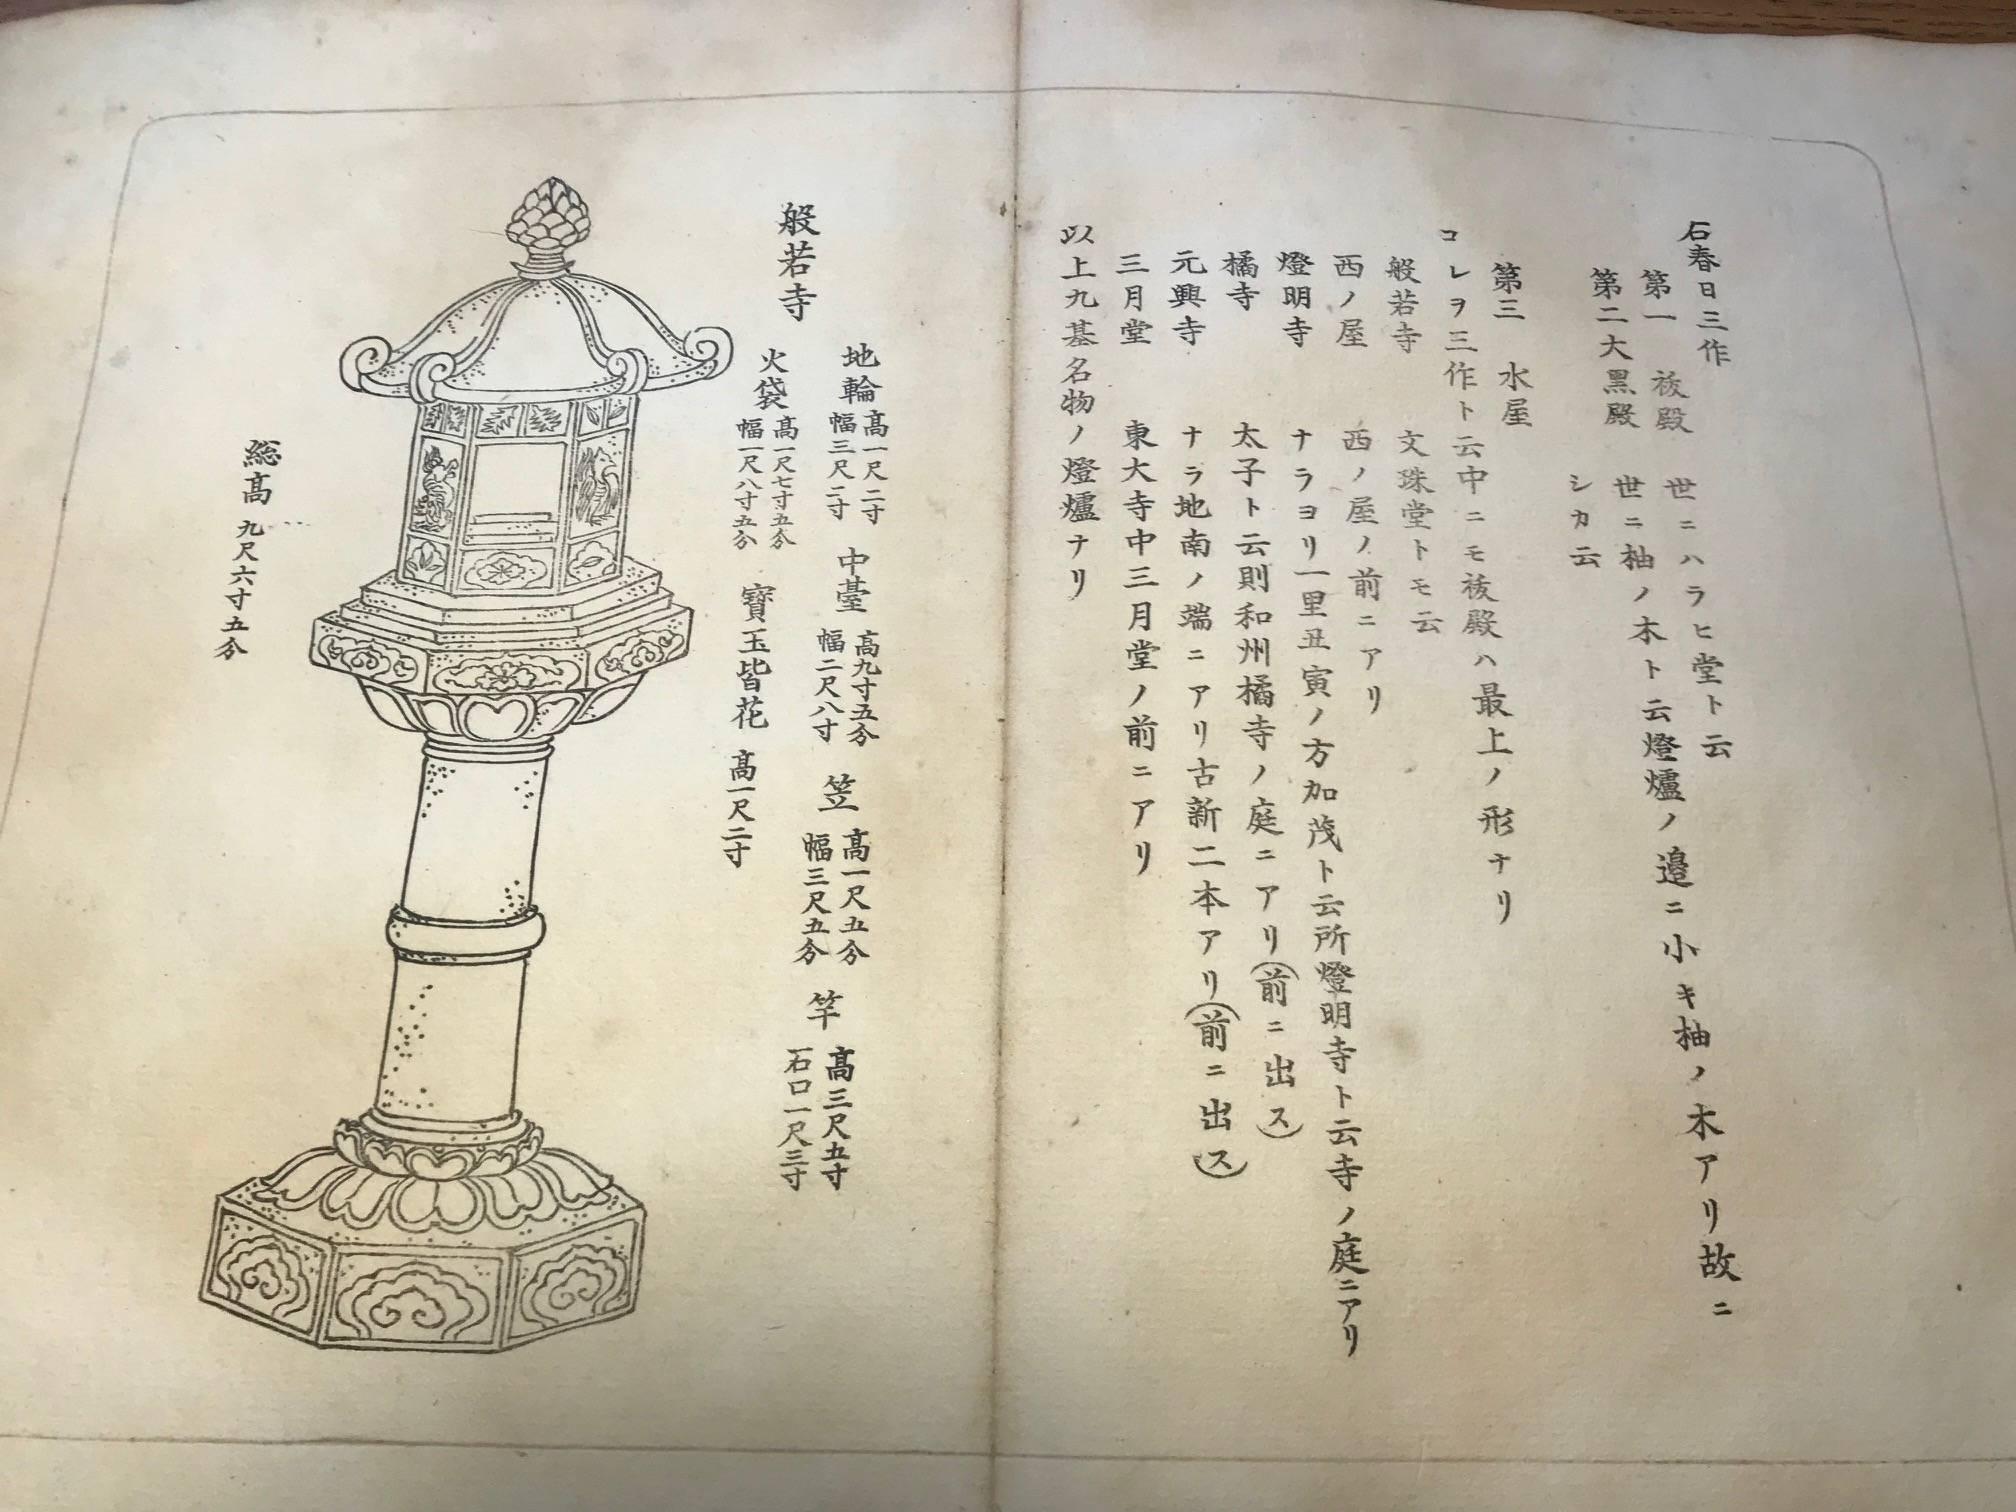 石春日三作
第一 祓殿 世ニハラヒ堂ト云
第二大黒殿 世ニ柚ノ木ト云燈爐ノ邉ニ小キ柚ノ木アリ故ニ
シカ云
第三 水屋
コレヲ三作ト云中ニモ祓殿ハ最上ノ形ナリ
般若寺 文珠堂トモ云
西ノ屋 西ノ屋ノ前ニアリ
燈明寺 ナラヨリ一里丑寅ノ方加茂ト云所燈明寺ト云寺ノ庭ニアリ
橘寺 太子ト云則和州橘寺ノ庭ニアリ(前ニ出ス)
元興寺 ナラ地南ノ端ニアリ古新二本アリ(前ニ出ス)
三月堂 東大寺中三月堂ノ前ニアリ
以上九基名物ノ燈爐ナリ
般若寺
地輪 高一尺二寸 幅三尺二寸 中臺 高九寸五分 幅二尺八寸 笠 高一尺五分 幅三尺五分 竿 高三尺五寸 石口一尺三寸
火袋 高一尺七寸五分 幅一尺八寸五分 寳玉皆花 高一尺二寸
総高 九尺六寸五分